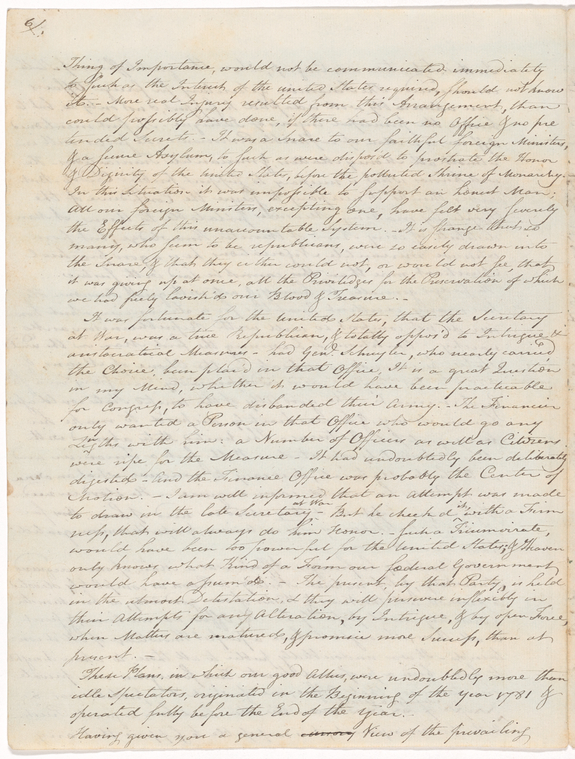 6/.
Thing of Importance, would not be communicated immediately
to such as the Interest of the united States required, should not know
it. - More real Injury resulted from this Arrangement, than
could possibly have done, if there had been no Office & no pre
tended Secrets. - It was a Snare to our faithful foreign Ministers,
& a secure Asylum, to such as were disposed to prostrate the Honor
& Dignity of the United States, before the polluted Shrine of Monarchy.
In this Situation it was impossible to support an honest Man;
All our foreign Ministers, excepting one, have felt very severely
the Effects of this unaccountable System. - It is strange that so
many, who seem to be republicans, were so easily drawn into
the Snare, & that they either could not, or would not see, that
it was giving up at once, all the Priviledges for the Preservation of which
we had freely lavished our Blood & Treasure. -
It was fortunate for the united States, that the Secretary
at War, was a true Republican, & totally oppos'd to Intrigue &
aristocratical Measures - had Genl Schuyler, who nearly carried
the Choice, been placed in that Office, It is a great Question
in my Mind, whether it would have been practicable
for Congress, to have disbanded their Army. - The Financier
only wanted a Person in that Office who would go any
Lengths with him: a Number of Officers as well as Citizens
were ripe for the Measure - It had undoubtedly been deliberately
digested - and the Finance Office was probably the Center of
Motion. - I am well informed that an attempt was made
to draw in the late Secretary at War - But he check'd it with a Firm
ness, that will always do him Honor. - Such a Triumvirate,
would have been too powerful for the United States, & Heaven
only knows, what Kind of a Form our fœderal Government
would have assumed. - The present, by that Party, is held
in the utmost Detestation, & they will persevere inflexibly in
their Attempts for any Alteration, by Intrigue, & by open Force,
when Matters are matured, & promise more Success, than at
present. -
These Plans, in which our good Allies, were undoubtedly more than
idle Spectators, originated in the Beginning of the Year 1781 &
operated fully before the End of the Year.
Having given you a general cursory View of the prevailing